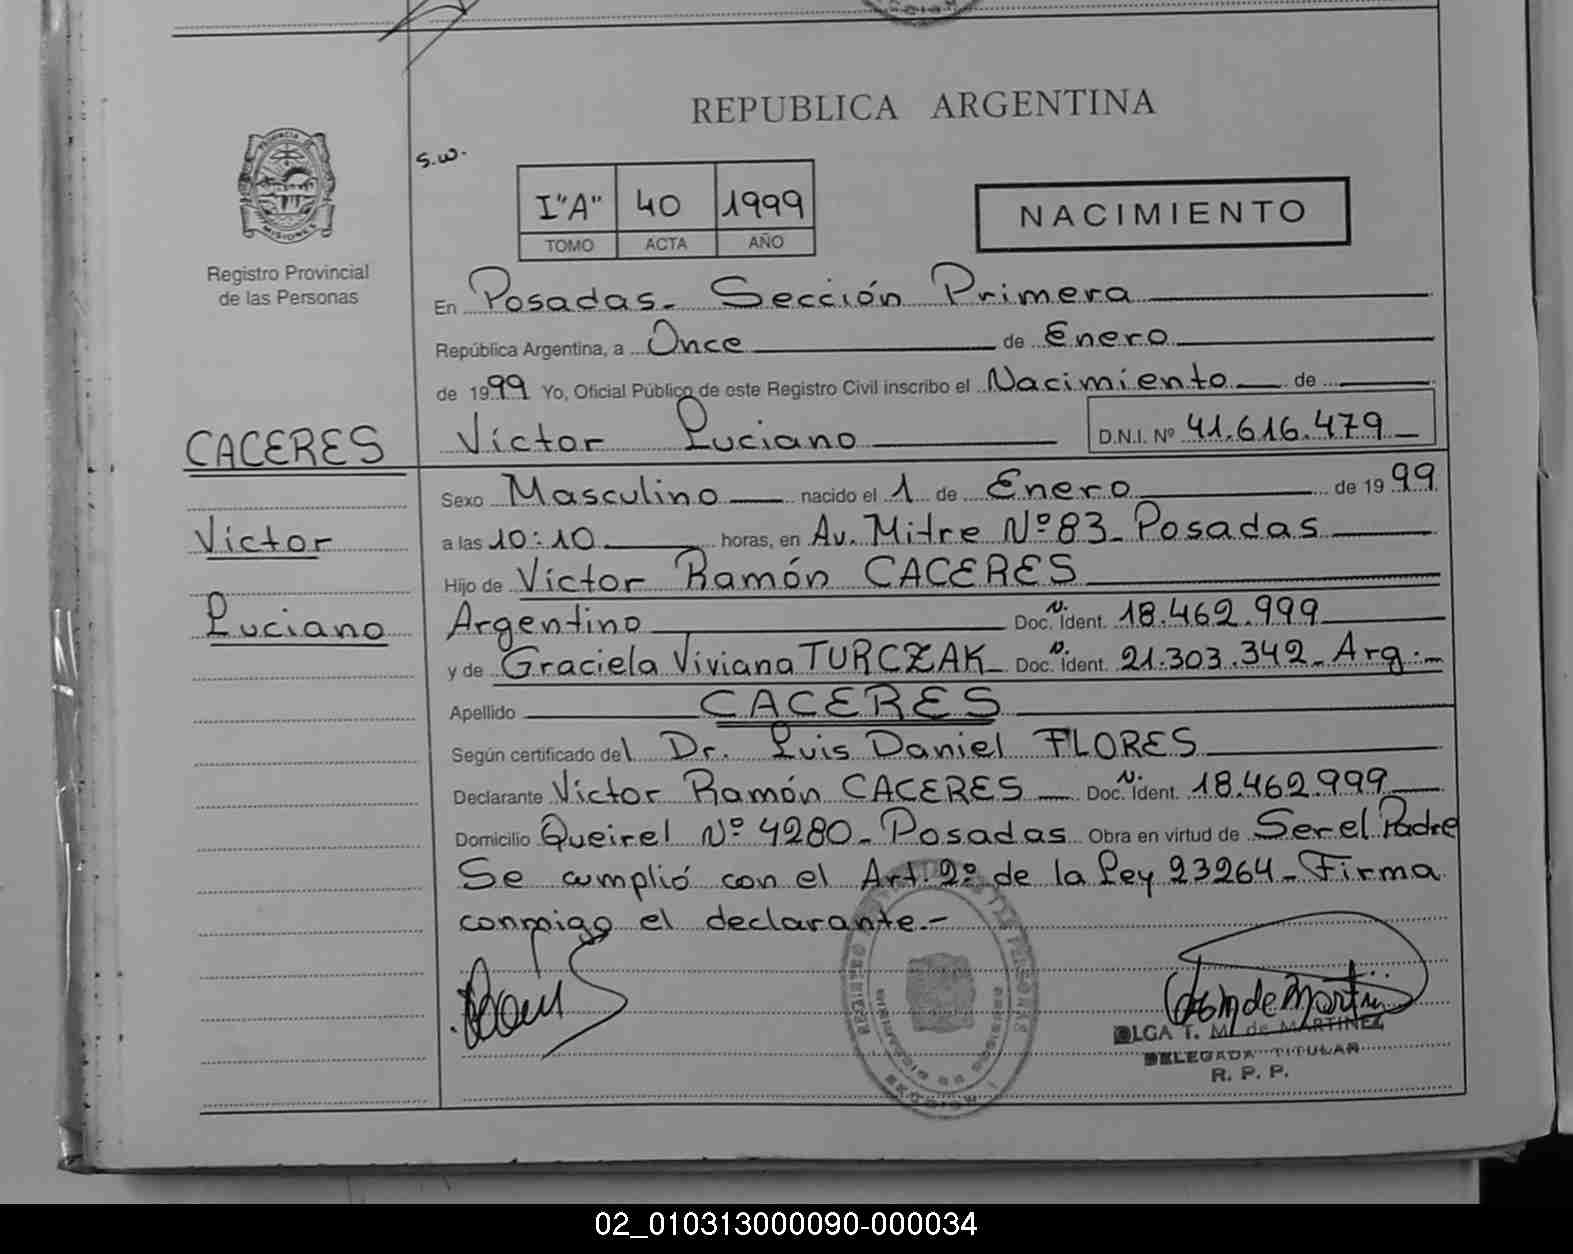 REPUBLICA ARGENTINA
PROVINCIA
MISIONES
Registro Provincial
de las Personas
s.w.
I"A" 40 1999
TOMO ACTA AÑO
NACIMIENTO
En Posadas- Sección Primera
República Argentina, a Once de Enero
de 1999 Yo, Oficial Público de este Registro Civil inscribo el Nacimiento de
CACERES
Víctor Luciano D.N.I. Nº 41.616.479
Sexo Masculino nacido el 1 de Enero de 1999
Víctor
a las 10:10 horas, en Av. Mitre Nº 83- Posadas
Hijo de Víctor Ramón CACERES
Luciano
Argentino Doc. N. Ident. 18.462.999
y de Graciela Viviana TURCZAK- Doc. N. Ident. 21.303.342- Arg.-
Apellido CACERES
Según certificado del Dr. Luis Daniel FLORES
Declarante Víctor Ramón CACERES Doc. N. Ident. 18.462.999
Domicilio Queirel Nº 4280- Posadas Obra en virtud de Ser el Padre
Se cumplió con el Art. 2º de la Ley 23264- Firma
conmigo el declarante.-
OLGA T. M. de MARTINEZ
DELEGADA TITULAR
R. P. P.
02_010313000090-000034